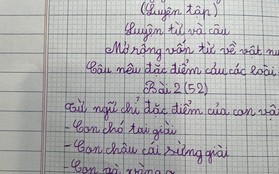 (Luyện tập)
Luyện từ và câu
Mở rộng vốn từ về vật nu
Câu nêu đặc điểm của các loài
Bài 2 (52)
Từ ngữ chỉ đặc điểm của con vâ
- Con chó tai giài
- Con châu cái sừng giài
- Con gà vàng